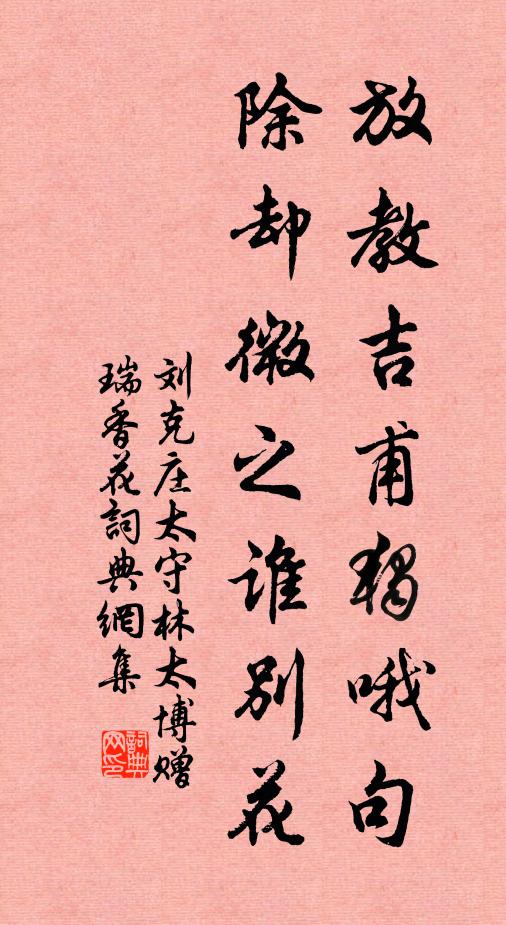 放教吉甫獨哦句
除却微之誰別花
刘克庄太守林太博赠
瑞香花詞典網集
詞典网印